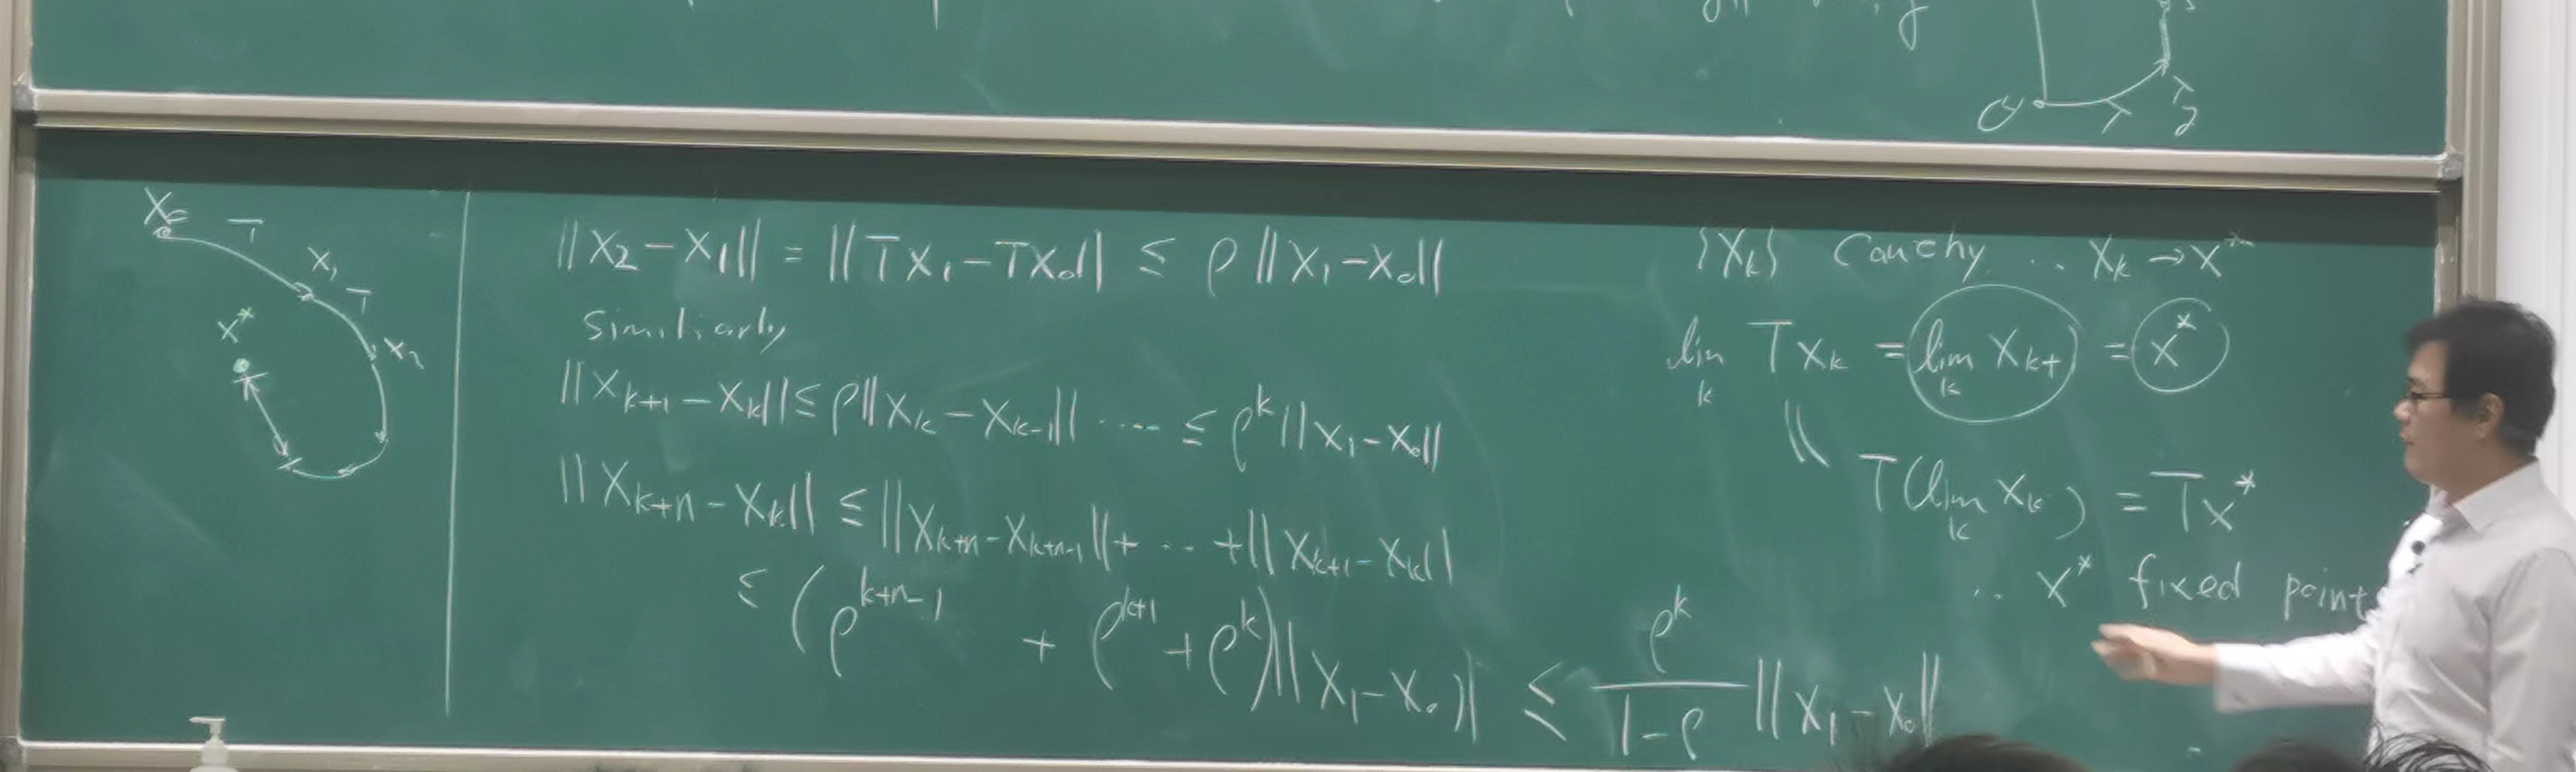 X₀ T
X₁ T
X₂
X*
||X₂ - X₁|| = ||TX₁ - TX₀|| ≤ ρ ||X₁ - X₀||
Similiarly
||X_{k+1} - X_k|| ≤ ρ||X_k - X_{k-1}|| ..... ≤ ρ^k ||X₁ - X₀||
||X_{k+n} - X_k|| ≤ ||X_{k+n} - X_{k+n-1}|| + ... + ||X_{k+1} - X_k||
≤ (ρ^{k+n-1} + ρ^{k+1} + ρ^k) ||X₁ - X₀|| ≤ \frac{ρ^k}{1-ρ} ||X₁ - X₀||
{X_k} Cauchy .. X_k → X*
lim_k TX_k = lim_k X_{k+} = X*
\\ T(lim_k X_k) = TX*
.. X* fixed point